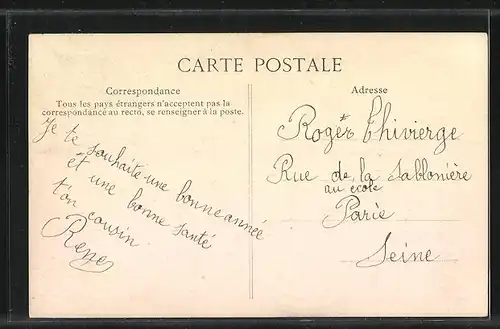 CARTE POSTALE
Correspondance
Tous les pays étrangers n'acceptent pas la
correspondance au recto, se renseigner à la poste.
Je te
souhaite une bonne année
et une bonne santé
ton cousin
René
Adresse
Roger Thivierge
Rue de la Sablonière
au école
Paris
Seine